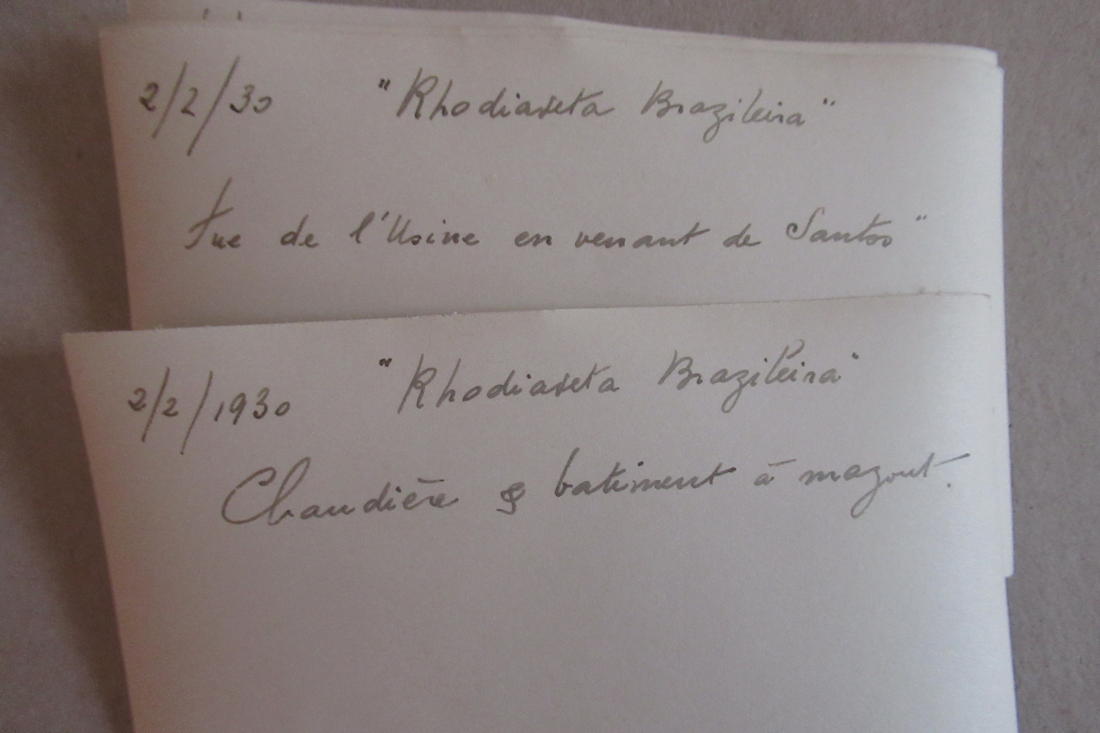 2/2/30 "Rhodiaseta Brazileira"
Vue de l'Usine en venant de Santos"
2/2/1930 "Rhodiaseta Brazileira"
Chaudière & batiment à mazout.